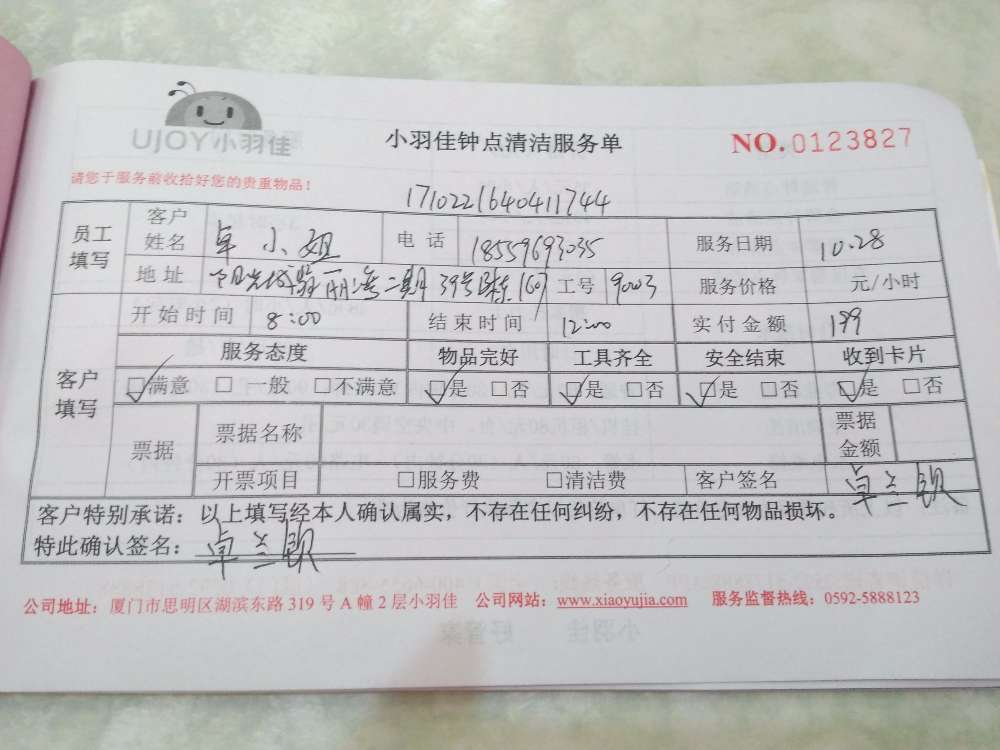 UJOY小羽佳
小羽佳钟点清洁服务单
NO.0123827
请您于服务前收拾好您的贵重物品！
1710221640411744
员工填写 客户姓名 卓小姐 电话 18559693035 服务日期 10.28
地址 二期39号 工号 9003 服务价格 元/小时
客户填写 开始时间 8:00 结束时间 12:00 实付金额 199
服务态度 物品完好 工具齐全 安全结束 收到卡片
☑满意 □一般 □不满意 ☑是 □否 ☑是 □否 ☑是 □否 ☑是 □否
票据 票据名称 票据金额
开票项目 □服务费 □清洁费 客户签名 卓兰
客户特别承诺：以上填写经本人确认属实，不存在任何纠纷，不存在任何物品损坏。
特此确认签名：卓兰
公司地址：厦门市思明区湖滨东路319号A幢2层小羽佳 公司网站：www.xiaoyujia.com 服务监督热线：0592-5888123